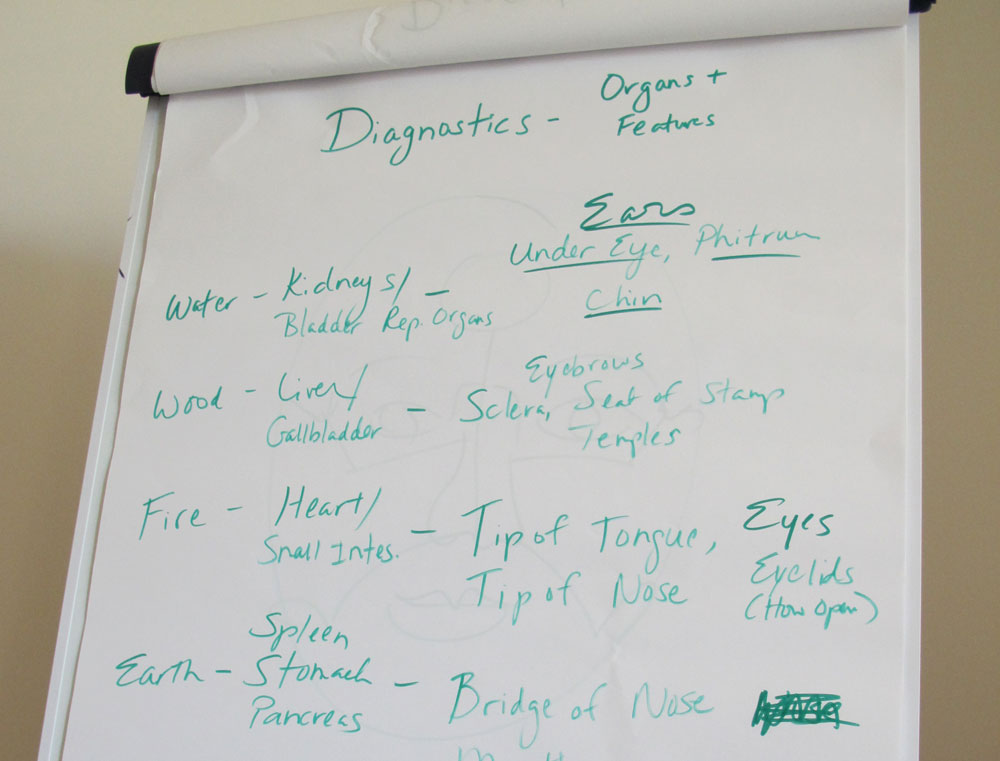 Diagnostics - Organs +
Features
Ears
Under Eye, Phitrum
Chin
Water - Kidneys/ -
Bladder Rep. Organs
Eyebrows
Wood - Liver/ - Sclera, Seat of Stamp
Gallbladder
Temples
Fire - Heart/ - Tip of Tongue, Eyes
Small Intes.
Tip of Nose
Eyelids
(How Open)
Spleen
Earth - Stomach - Bridge of Nose
Pancreas